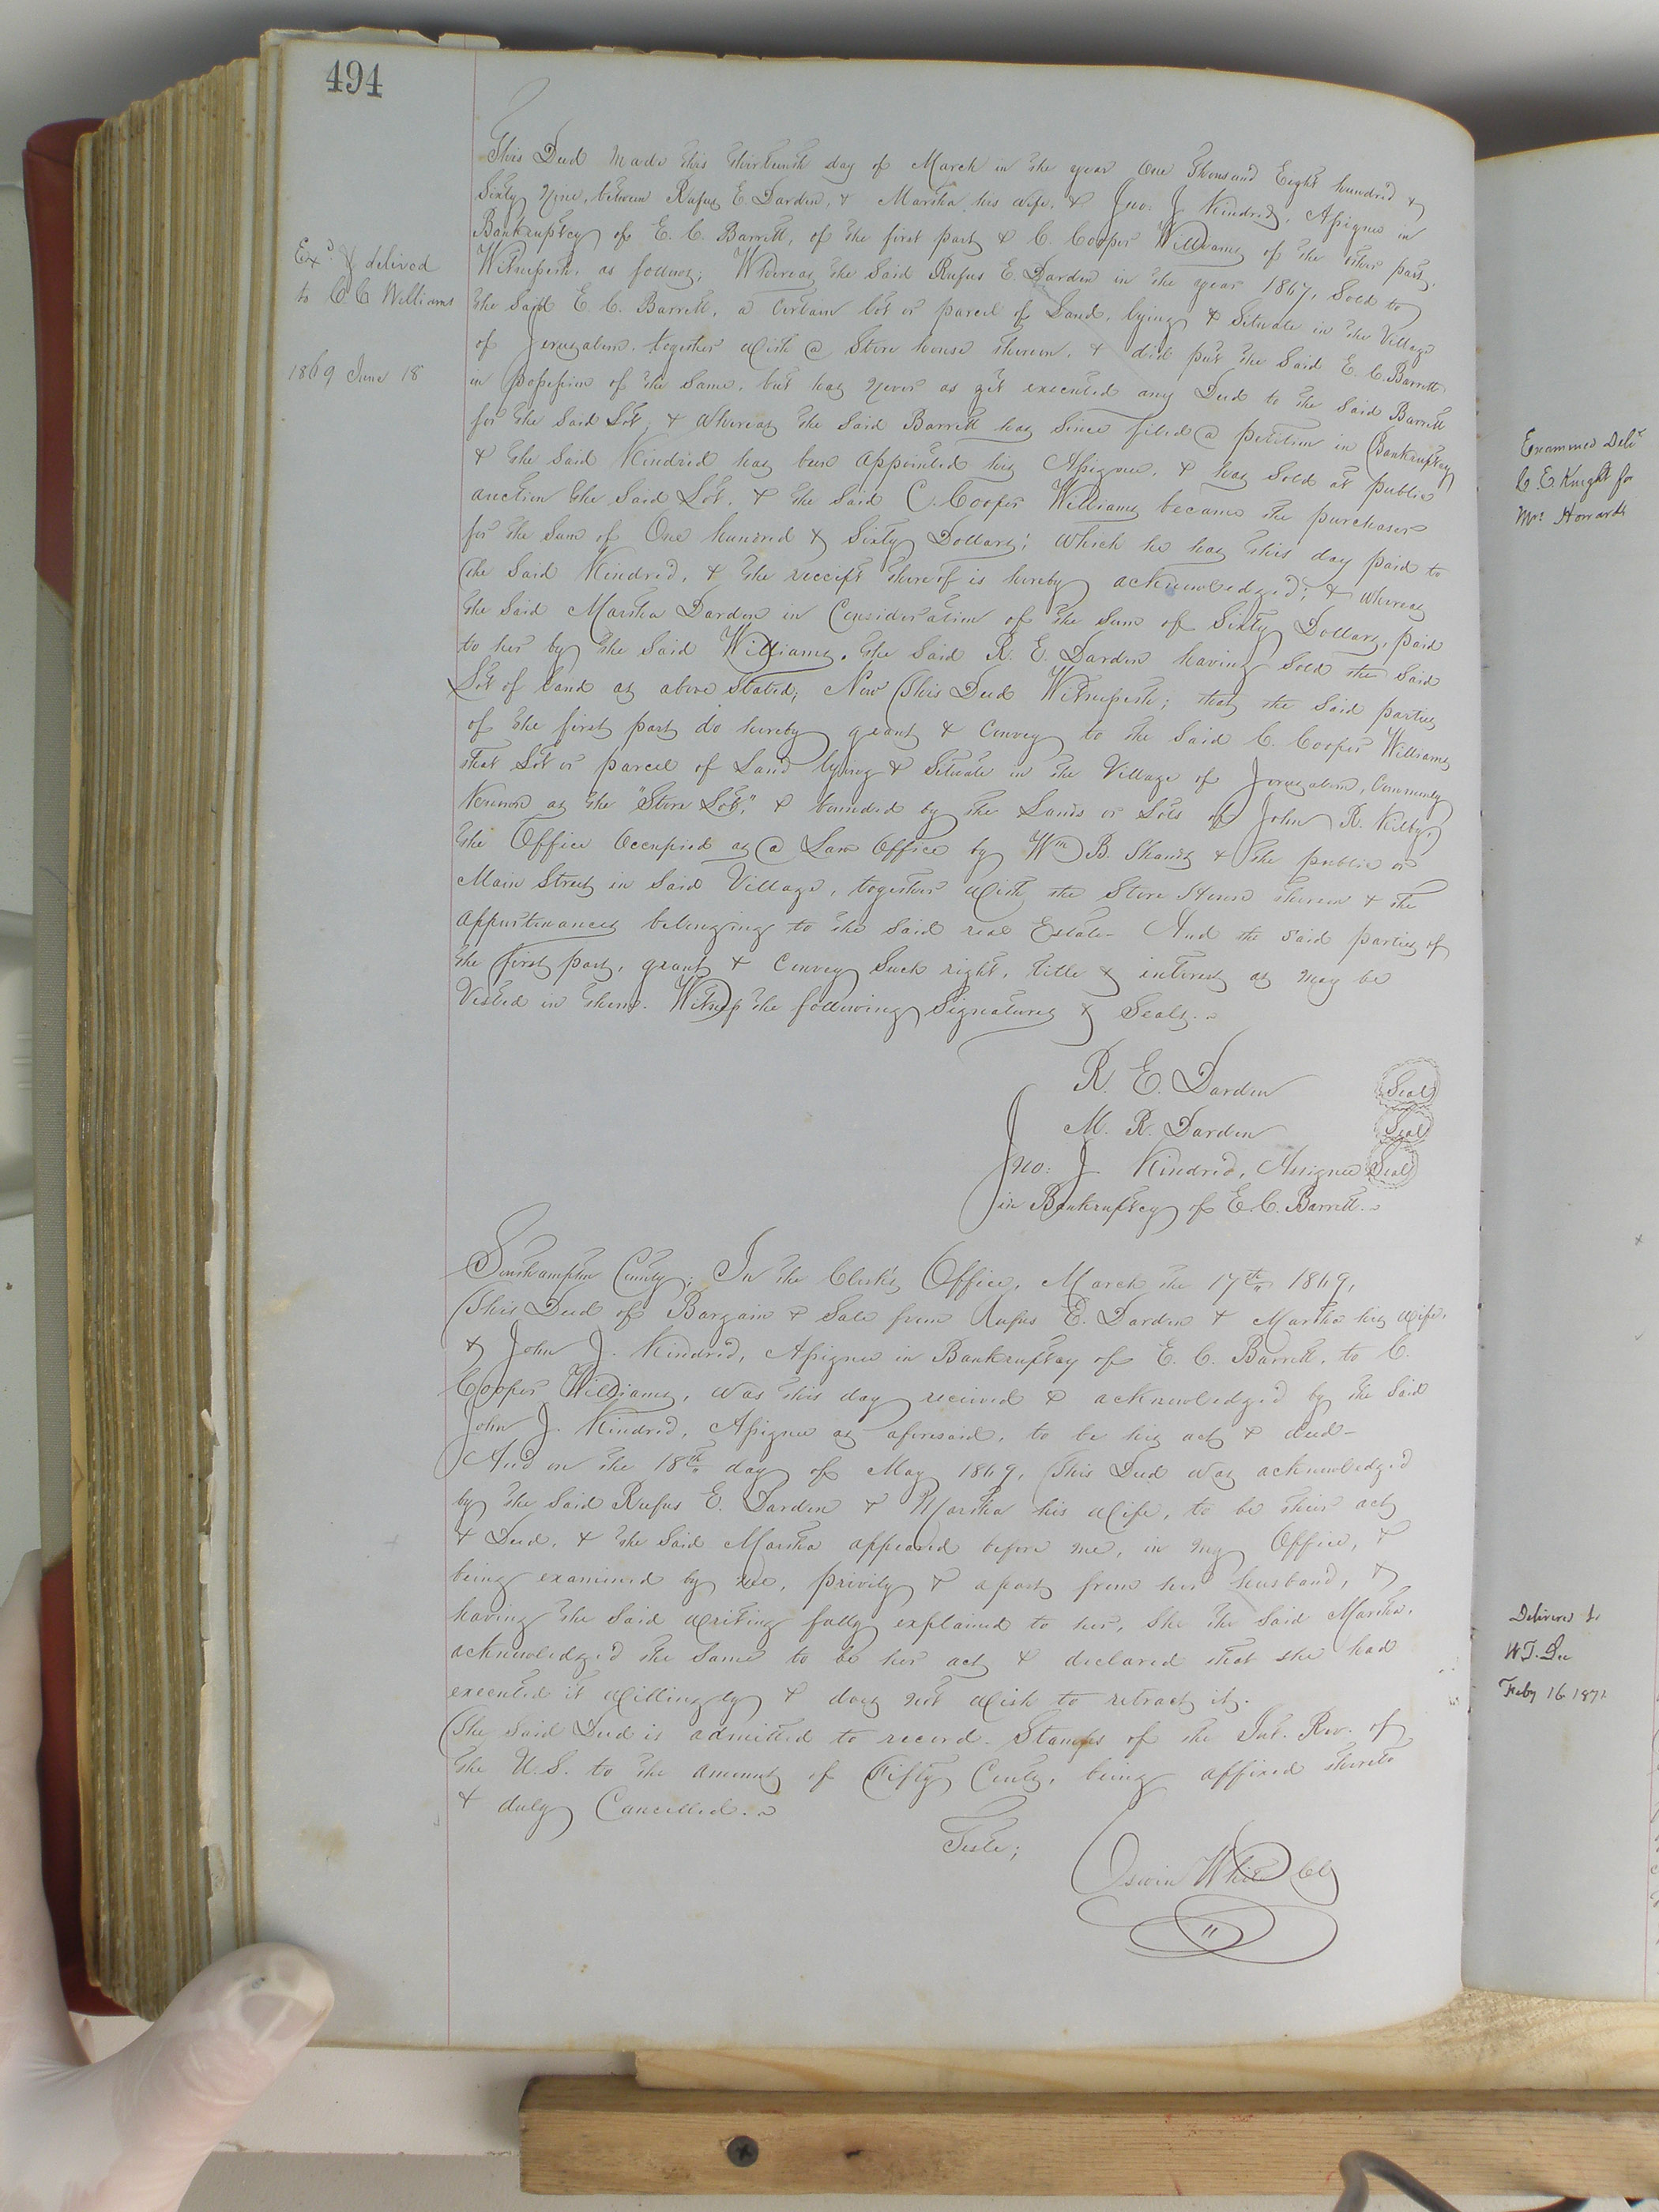 494
This Deed made this thirteenth day of March in the year One Thousand Eight hundred &
Sixty Nine, between Rufus E. Darden, & Martha his wife, & Jno. J. Kindred, Assignee in
Bankruptcy of E. C. Barrett, of the first part & C. Cooper Williams of the other part,
Witnesseth, as follows; Whereas the said Rufus E. Darden in the year 1867, Sold to
the said E. C. Barrett, a certain lot or parcel of Land, lying & Situate in the Village
of Jerusalem, together with a Store house thereon, & did put the Said E. C. Barrett
in possession of the Same, but has never as yet executed any Deed to the Said Barrett
for the Said Lot, & Whereas the Said Barrett has Since filed a petition in Bankruptcy
& the Said Kindred has been appointed his Assignee, & has Sold at public
auction the Said Lot, & the Said C. Cooper Williams became the purchaser
for the Sum of One hundred & Sixty Dollars; Which he has this day paid to
the Said Kindred, & the receipt thereof is hereby acknowledged; & whereas
the Said Martha Darden in Consideration of the Sum of Sixty Dollars, paid
to her by the Said Williams. the Said R. E. Darden having Sold the Said
Lot of land as above Stated; Now This Deed Witnesseth; that the Said parties
of the first part do hereby grant & Convey to the Said C. Cooper Williams
that Lot or parcel of Land lying & Situate in the Village of Jerusalem, Commonly
Known as the "Store Lot," & bounded by the Lands or Lots of John R. Kilby,
the Office Occupied as a Law Office by Wm B. Shands & the public or
Main Street in Said Village, together with the Store House thereon & the
appurtenances belonging to the Said real Estate- And the said parties of
the first part, grant & Convey Such right, title & interest as may be
Vested in them. Witness the following Signatures & Seals.
R. E. Darden Seal
M. R. Darden Seal
Jno: J. Kindred, Assignee Seal
in Bankruptcy of E. C. Barrett.
Southampton County; In the Clerk's Office, March the 17th 1869,
This Deed of Bargain & Sale from Rufus E. Darden & Martha his wife,
& John J. Kindred, Assignee in Bankruptcy of E. C. Barrett, to C.
Cooper Williams, was this day received & acknowledged by the Said
John J. Kindred, Assignee as aforesaid, to be his act & deed-
And on the 18th day of May 1869, This Deed was acknowledged
by the Said Rufus E. Darden & Martha his wife, to be their act
& Deed, & the Said Martha appeared before me, in my Office, &
being examined by me, privily & apart from her husband, &
having the Said writing fully explained to her, She the Said Martha,
acknowledged the Same to be her act & declared that she had
executed it willingly & does not wish to retract it.
The Said Deed is admitted to record. Stamps of the Int. Rev. of
the U.S. to the amount of Fifty Cents, being affixed thereto
& duly Cancelled.
Teste;
Oswin White Clk
Exd & delived
to C C Williams
1869 June 18
Examined Deld
C. E. Knight for
Mrs Howard
Delivered to
W. J.
Feby 16 1871